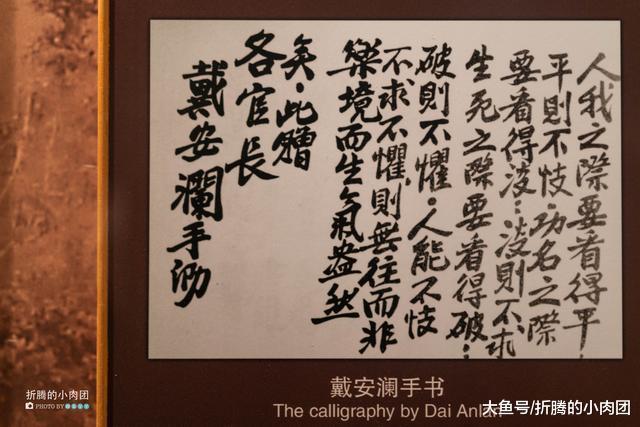 人我之際要看得平.
平則不忮.功名之際
要看得淡:淡則不求
生死之際要看得破:
破則不懼.人能不忮
不求不懼.則無往而非
樂境而生氣盎然
矣.此贈
各官長
戴安瀾手泐
戴安澜手书
The calligraphy by Dai Anlan
折腾的小肉团
PHOTO BY
大鱼号/折腾的小肉团